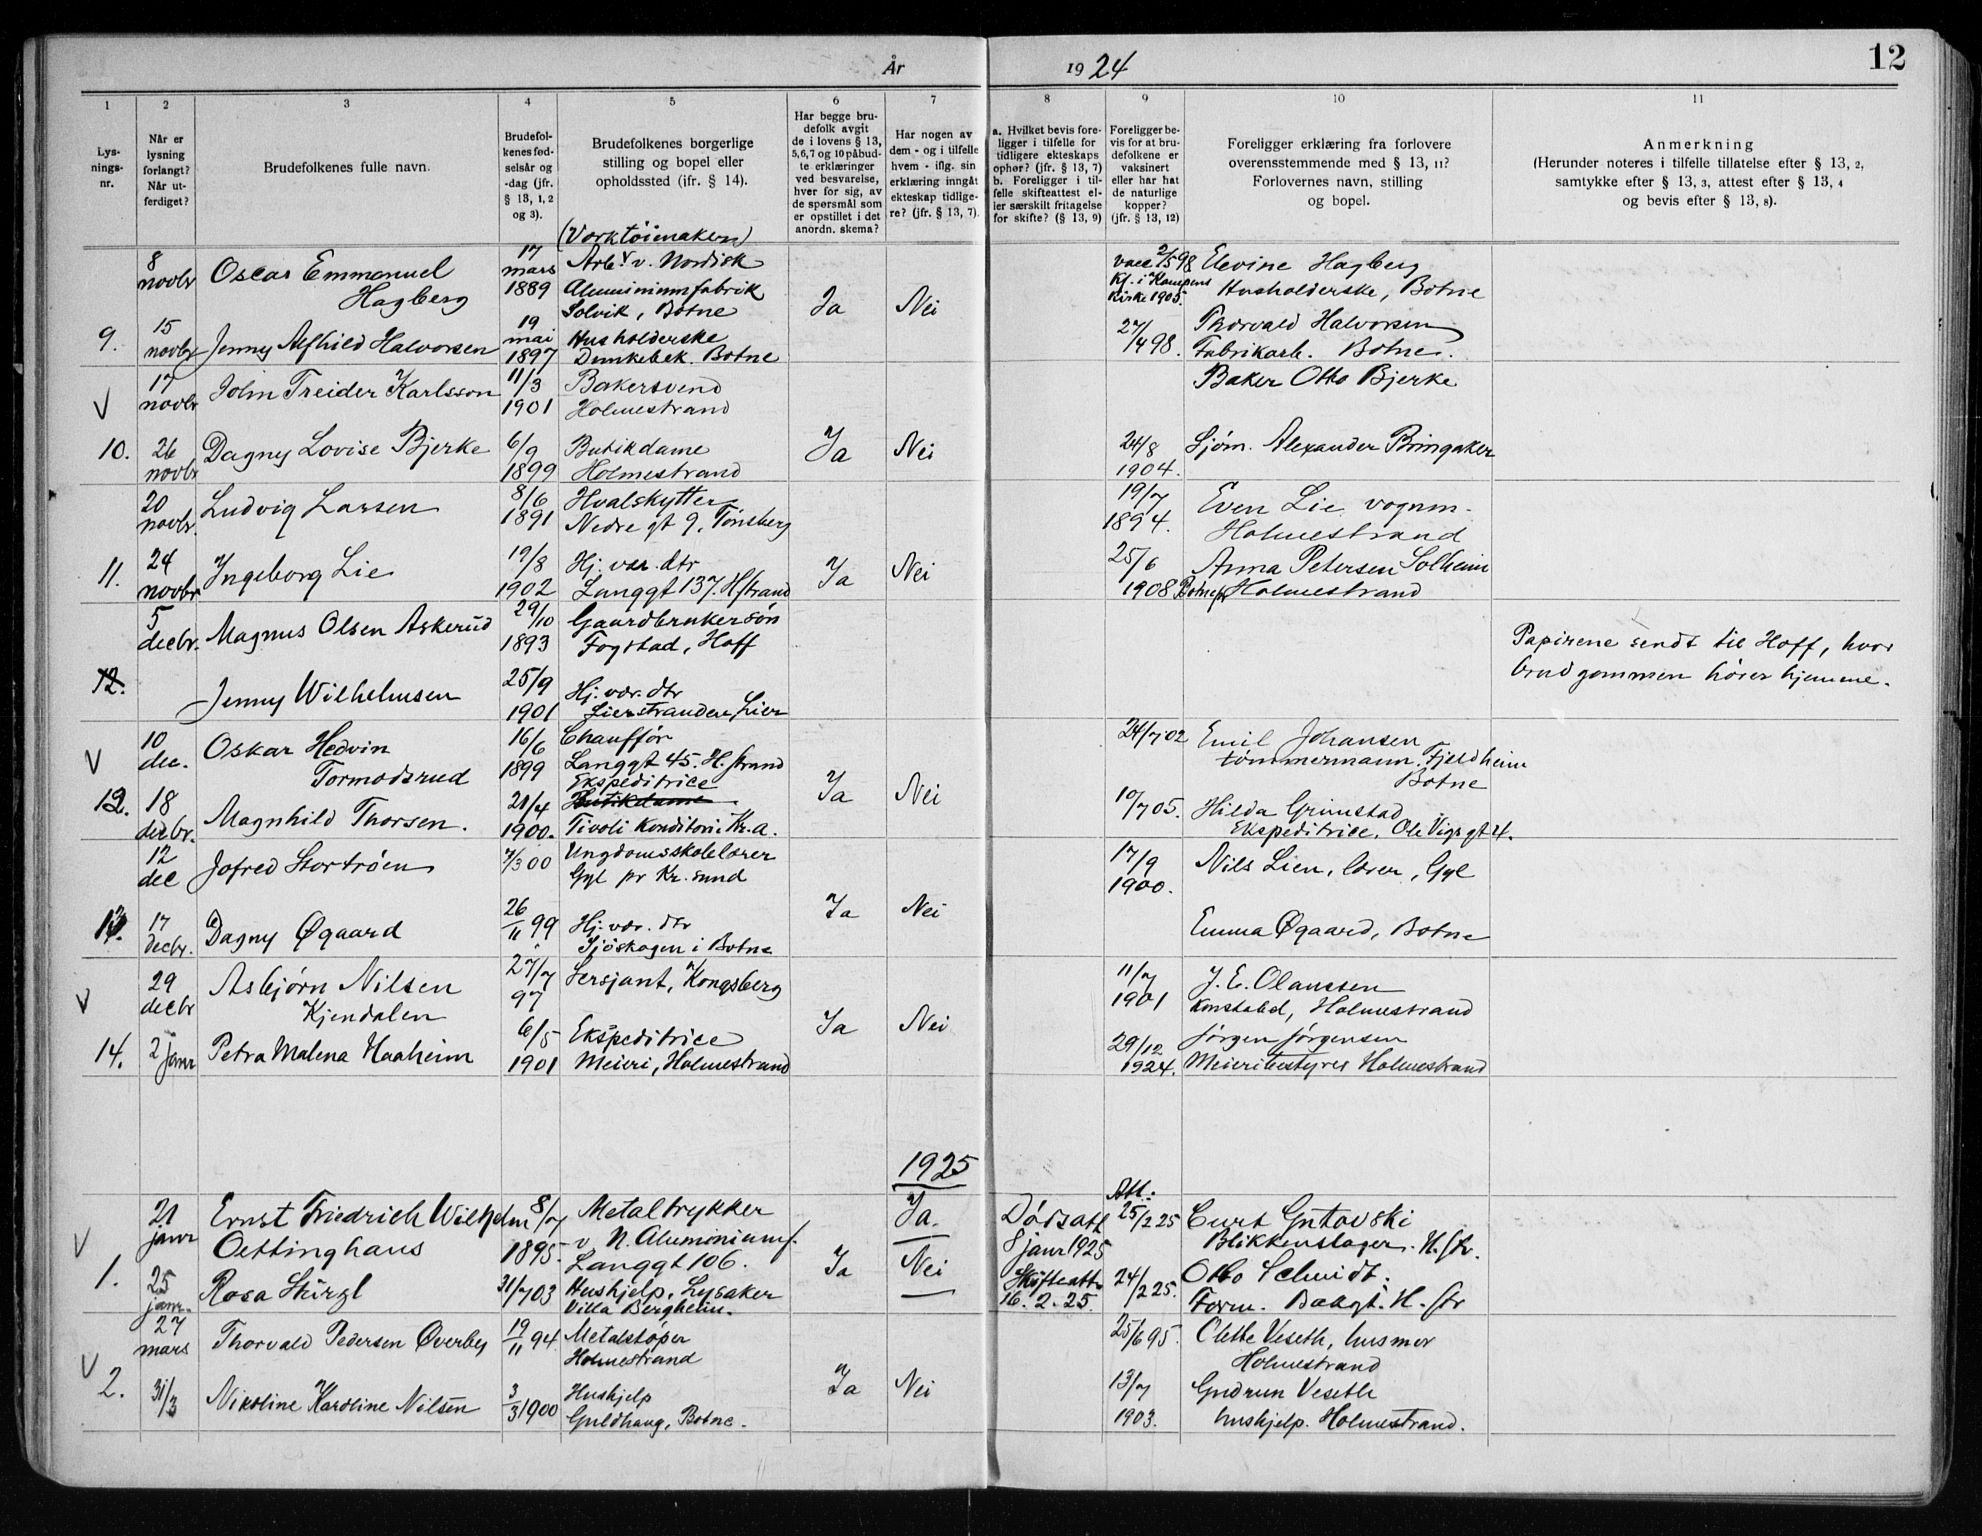 12
År
19 24
1
2
3
4
5
6
7
8
9
10
11
Lys-
nings-
nr.
Når er
lysning
forlangt?
Når ut-
ferdiget?
Brudefolkenes fulle navn.
Brudefol-
kenes fød-
selsår og
-dag (jfr.
§ 13, 1, 2
og 3).
Brudefolkenes borgerlige
stilling og bopel eller
opholdssted (ifr. § 14).
Har begge bru-
defolk avgit
de i lovens § 13,
5,6,7 og 10 påbud-
te erklæringer
ved besvarelse,
hver for sig, av
de spørsmål som
er opstillet i det
anordn. skema?
Har nogen av
dem - og i tilfelle
hvem - iflg. sin
erklæring inngåt
ekteskap tidlige-
re? (jfr. § 13, 7).
a. Hvilket bevis fore-
ligger i tilfelle for
tidligere ekteskaps
ophør? (jfr. § 13, 7)
b. Foreligger i til-
felle skifteattest el-
ler særskilt fritagelse
for skifte? (§ 13, 9)
Foreligger be-
vis for at bru-
defolkene er
vaksinert
eller har hat
de naturlige
kopper?
(jfr. § 13, 12)
Foreligger erklæring fra forlovere
overensstemmende med § 13, 11?
Forlovernes navn, stilling
og bopel.
Anmerkning
(Herunder noteres i tilfelle tillatelse efter § 13, 2,
samtykke efter § 13, 3, attest efter § 13, 4
og bevis efter § 13, 8).
9.
8
novbr
Oscar Emmanuel
Hagberg
17
mars
1889
(Verktöimaker)
Arb. v. Nordisk
Aluminiumfabrik
Solvik, Botne
Ja
Nei
vacc 2/5 98
Kf. i Kampens
Kirke 1905.
Elevine Hagberg
Husholderske, Botne
15
novbr
Jenny Alfhild Halvorsen
19
mai
1897
Husholderske
Dunkebek. Botne
27/4 98.
Thorvald Halvorsen
Fabrikarb. Botne.
V
17
novbr
John Treider Karlsson
11/3
1901
Bakersvend
Holmestrand
Baker Otto Bjerke
10.
26
novbr
Dagny Lovise Bjerke
6/9
1899
Butikdame
Holmestrand
Ja
Nei
24/8
1904.
Sjöm. Alexander Bringaker
20
novbr.
Ludvig Larsen
8/6
1891
Hvalskytter
Nedre gt 9, Tönsberg
19/7
1894.
Even Lie vognm.
Holmestrand
11.
24
novbr
Ingeborg Lie
19/8
1902
Hj. vær. dtr
Langgt 137. Hstrand
Ja
Nei
25/6
1908 Botne
Anna Petersen Solheim
Holmestrand
5
decbr.
Magnus Olsen Askerud
29/10
1893
Gaardbrukersön
Fogstad, Hoff
Papirene sendt til Hoff, hvor
brudgommen hörer hjemme.
12.
Jenny Wilhelmsen
25/9
1901
Hj. vær. dtr
Lierstranden, Lier
V
10
dec.
Oskar Hedvin
Tormodsrud
16/6
1899
Chaufför
Langgt 45. H.strand
24/7 02
Emil Johansen
tömmermann. Fjeldheim
Botne
12.
18
decbr.
Magnhild Thorsen.
21/4
1900.
Ekspeditrice
Butikdame
Tivoli Konditori Kr.a.
Ja
Nei
10/7 05.
Hilda Grimstad
Ekspeditrice. Ole Vigs gt 4.
12
dec
Jofred Stortröen
7/3 00
Ungdomsskolelærer
Gyl pr Kr. sund
17/9
1900.
Nils Lien, lærer, Gyl
13.
17
decbr.
Dagny Øgaard
26/11 99
Hj. vær. dtr
Sjöskogen i Botne
Ja
Nei
Emma Øgaard, Botne
V
29
decbr
Asbjørn Nilsen
Kjendalen
27/7
97
Sersjant, Kongsberg
11/7
1901
J. E. Olaussen
Konstabel, Holmestrand
14.
2 janr
Petra Malena Haaheim
6/5
1901
Ekspeditrice
Meieri, Holmestrand
Ja
Nei
29/12
1924.
Jörgen Jörgensen
Meieribestyrer Holmestrand
1925
V
21
janr
Ernst Friedrich Wilhelm
Oettinghaus
8/7
1895.
Metaltrykker
v N. Alumoniumf.
Langgt 106.
Ja.
Dödsatt
8 janr 1925
Att.:
25/2 25
Curt Gutovski
Blikkenslager. H.str.
1.
25
janr.
Rosa Stürzl
31/7 03
Hushjelp, Lysaker
Villa Bergheim.
Ja
Nei
Skifteatt.
16. 2. 25.
24/2 25.
Otto Schmidt.
Form. Bakgt. H. str
V
27
mars
Thorvald Pedersen Överby
19/11 94
Metalstöper
Holmestrand
25/6 95.
Olette Veseth, husmor
Holmestrand
2.
31/3
Nikoline Karoline Nilsen
3/3 1900
Hushjelp
Guldhaug, Botne.
Ja
Nei
13/7
1903.
Gudrun Veseth
hushjelp. Holmestrand.